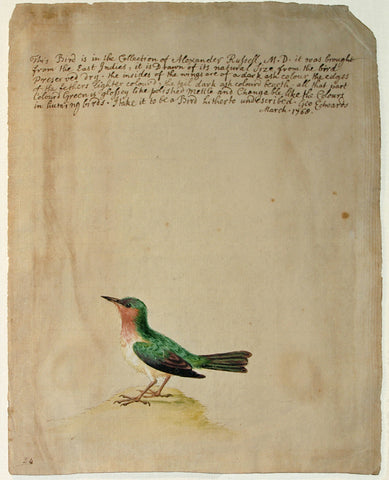 This Bird is in the Collection of Alexander Russell, M.D. it was brought
from the East Indies, it is Drawn of its natural Size from the bird
Preserved dry - the insides of the wings are of a dark ash colour the edges
of the fethers lighter colour'd the tail dark ash colour'd all that part
Colour'd Green is glossey like polished Mettle and Changable, like the Colours
in huming birds. I take it to be a Bird hitherto undescribed. Geo Edwards
March - 1768.
24